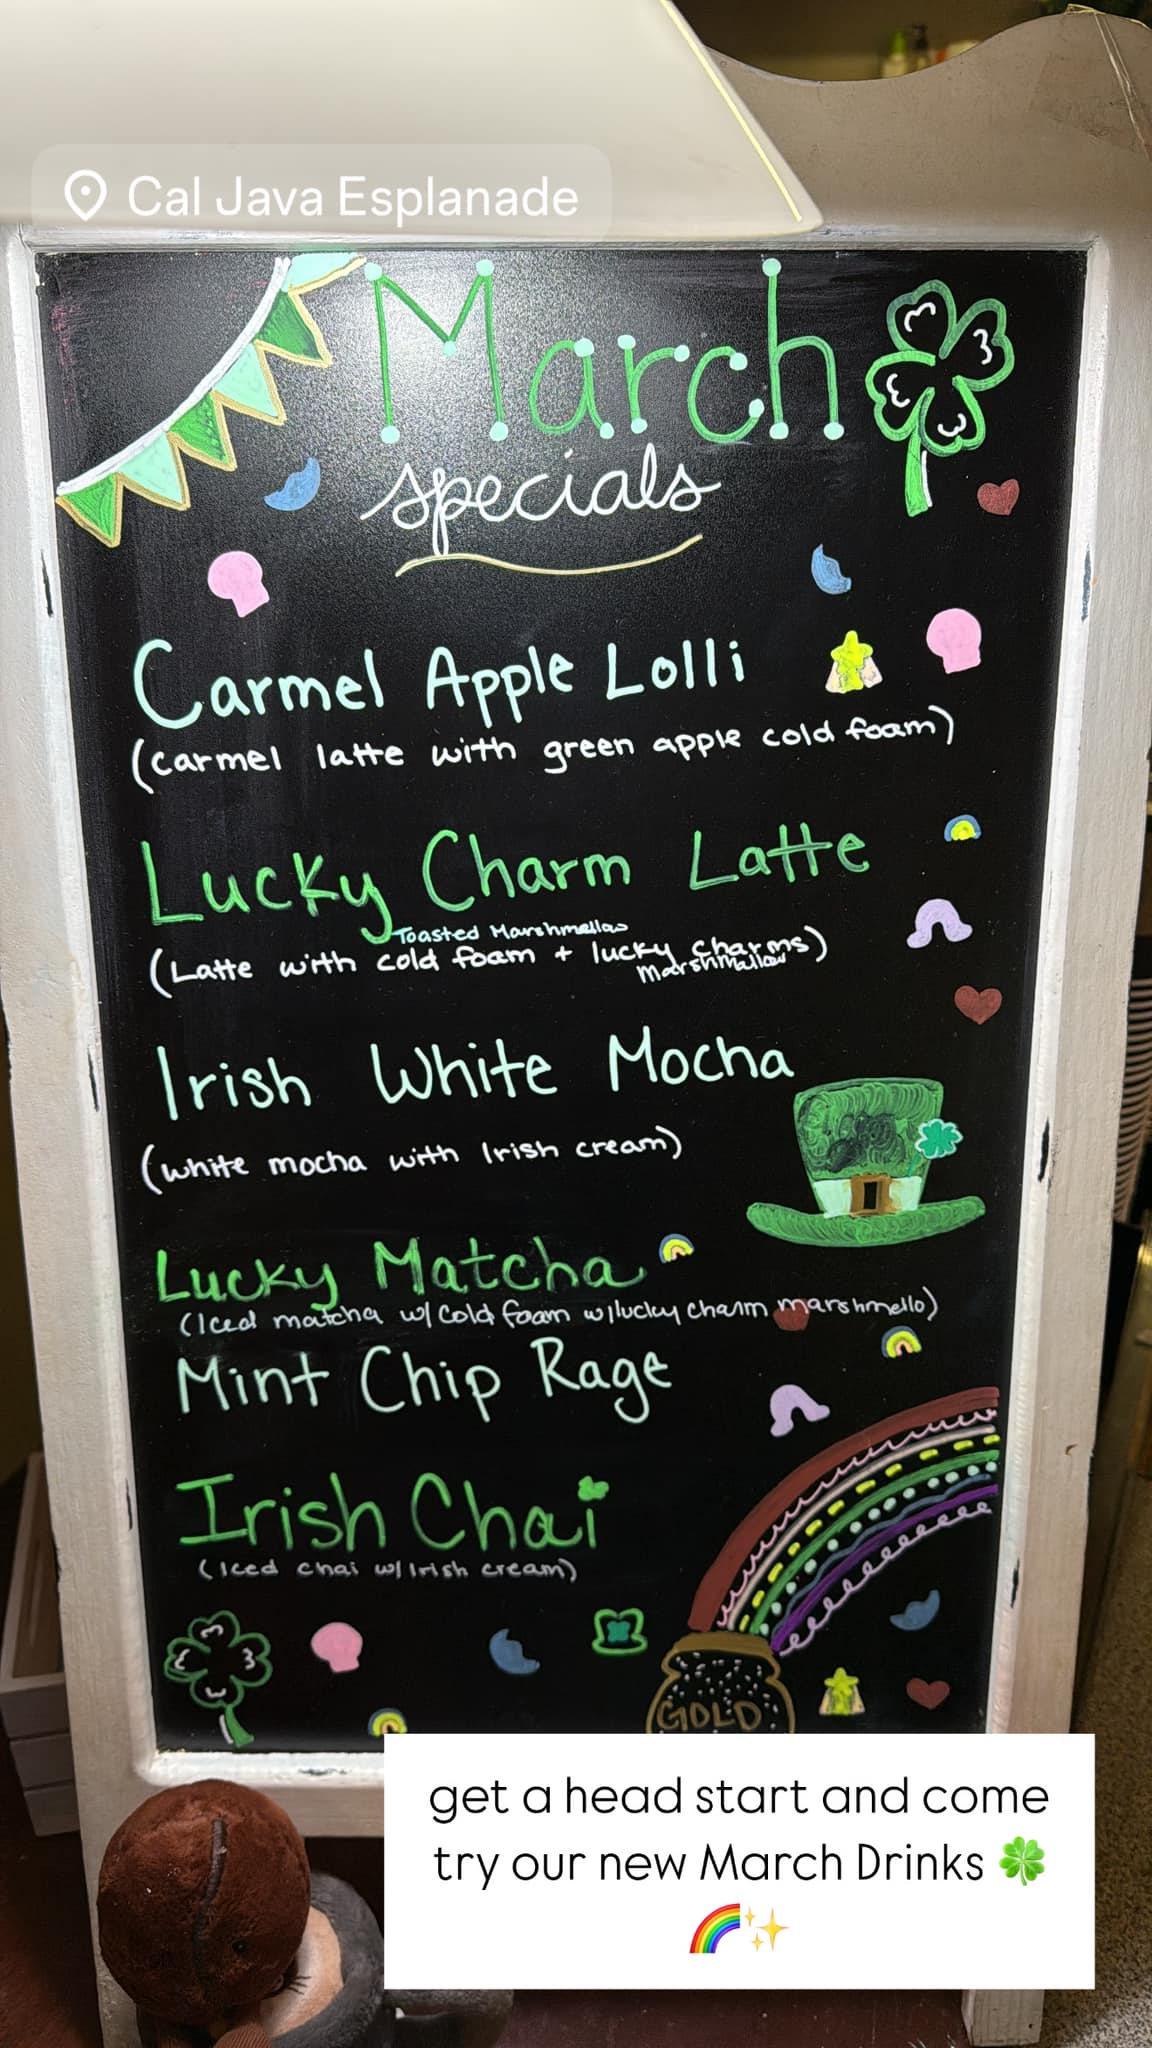 Cal Java Esplanade
March
specials
Carmel Apple Lolli
(carmel latte with green apple cold foam)
Lucky Charm Latte
Toasted Marshmellow
(Latte with cold foam + lucky charms)
Marshmallow
Irish White Mocha
(white mocha with Irish cream)
Lucky Matcha
(Iced matcha w/ cold foam w/lucky charm marshmello)
Mint Chip Rage
Irish Chai
(Iced chai w/ Irish cream)
GOLD
get a head start and come
try our new March Drinks 🍀
🌈✨